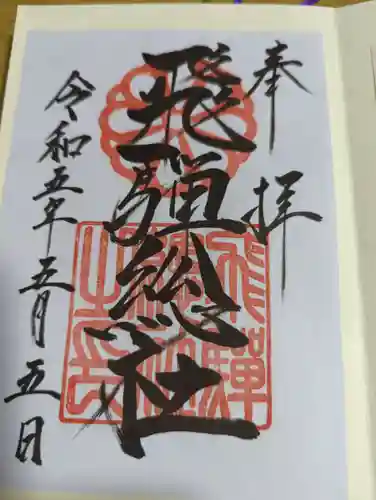 奉拝
飛騨総社
令和五年五月五日
飛騨
總社
之印